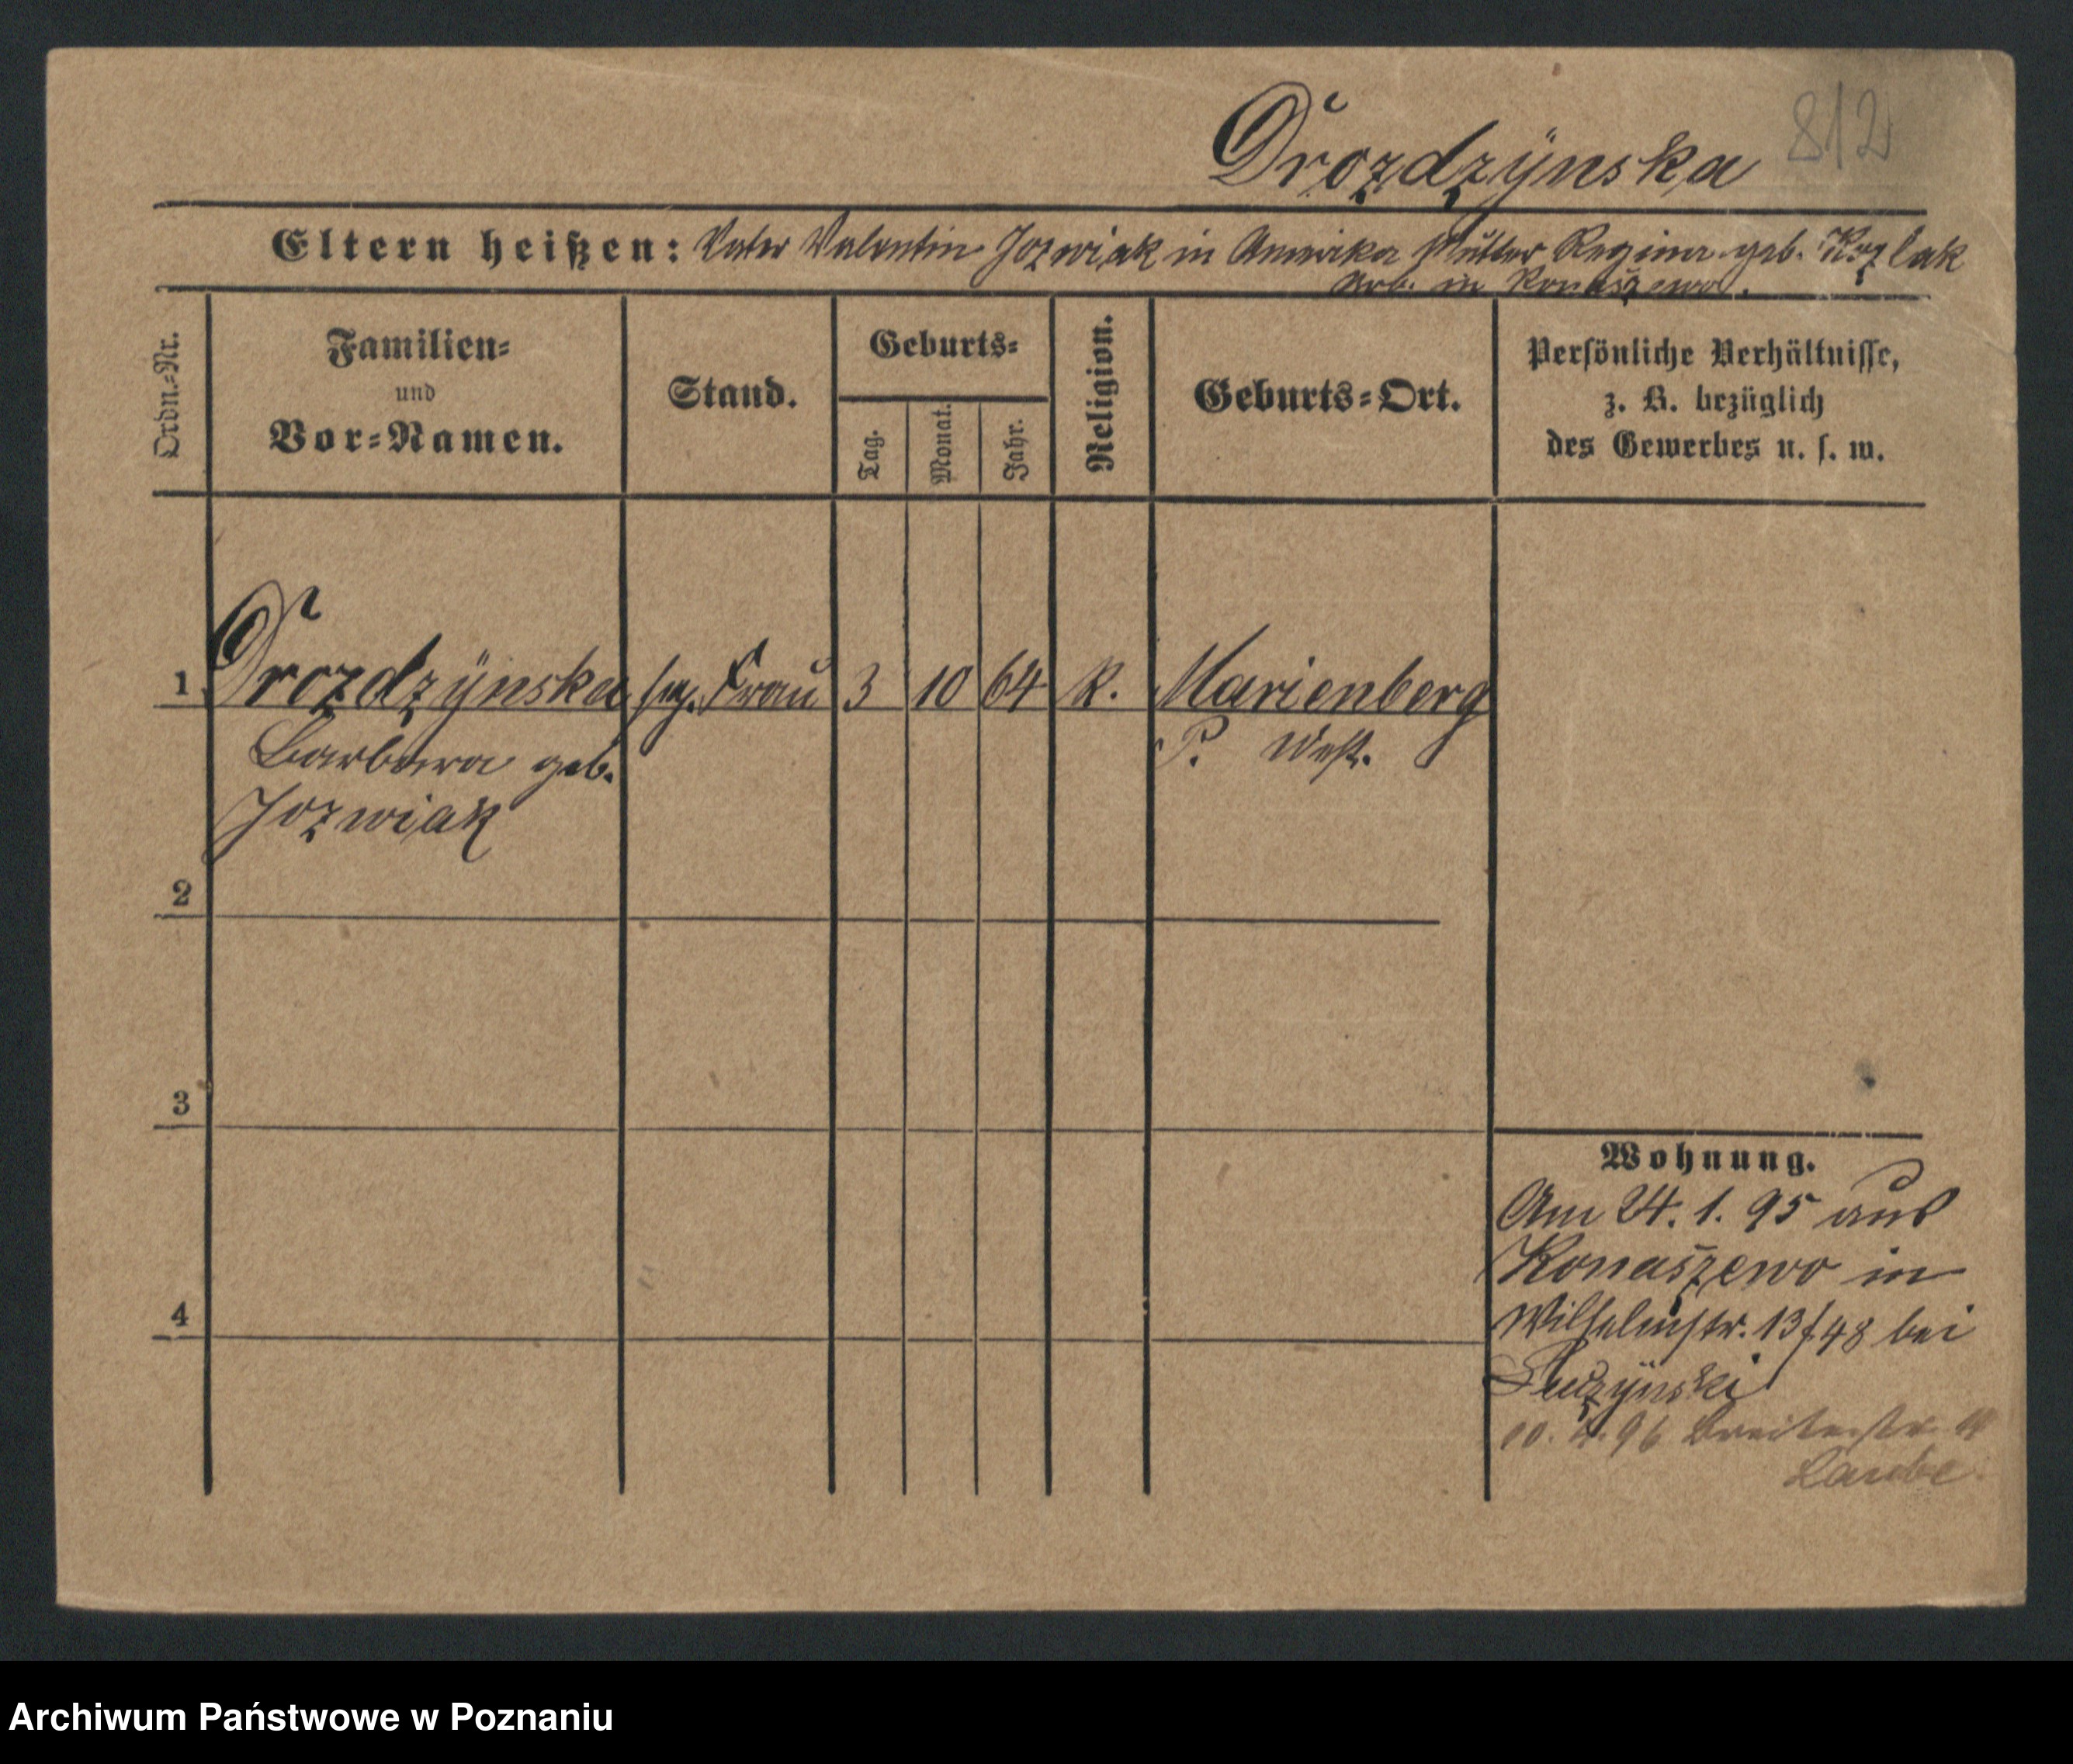 Drozdzÿnska 812
Eltern heißen: Vater Valentin Jozwiak in Amerika Mutter Regina geb. Kozlak
Arb. in Konaszewo.
Ordn.=Nr.
Familien=
und
Vor=Namen.
Stand.
Geburts=
Tag.
Monat.
Jahr.
Religion.
Geburts=Ort.
Persönliche Verhältnisse,
z. B. bezüglich
des Gewerbes u. s. w.
1 Drozdzÿnska sep. Frau 3 10 64 K. Marienberg
Barbara geb. P. West.
Jozwiak
2
3
4
Wohnung.
Am 24. 1. 95 aus
Konaszewo in
Wilhelmstr. 13/48 bei
10. 4. 96 Breitestr.
Laube
Archiwum Państwowe w Poznaniu